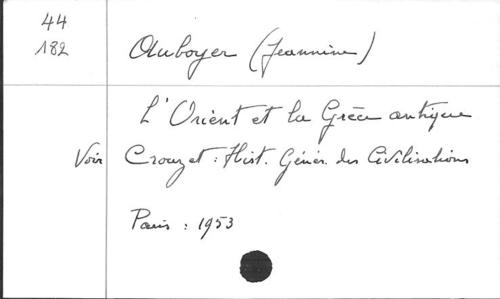 44
182
Auboyer (Jeannine)
L'Orient et la Grèce antique
Voir Crouzet : Hist. Génér. des Civilisations
Paris : 1953